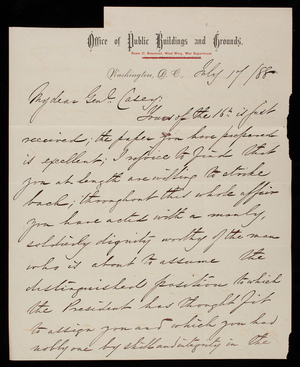 Office of Public Buildings and Grounds,
Washington, D. C. July 17 /88
My dear Genl. Casey,
Yours of the 16th is just
received; the paper you have prepared
is excellent; I rejoice to find that
you at length are willing to strike
back; throughout this whole affair
you have acted with a manly,
soldierly dignity worthy of the man
who is about to assume the
distinguished position to which
the President has thought fit
to assign you and which you had
nobly won by skill and integrity in the